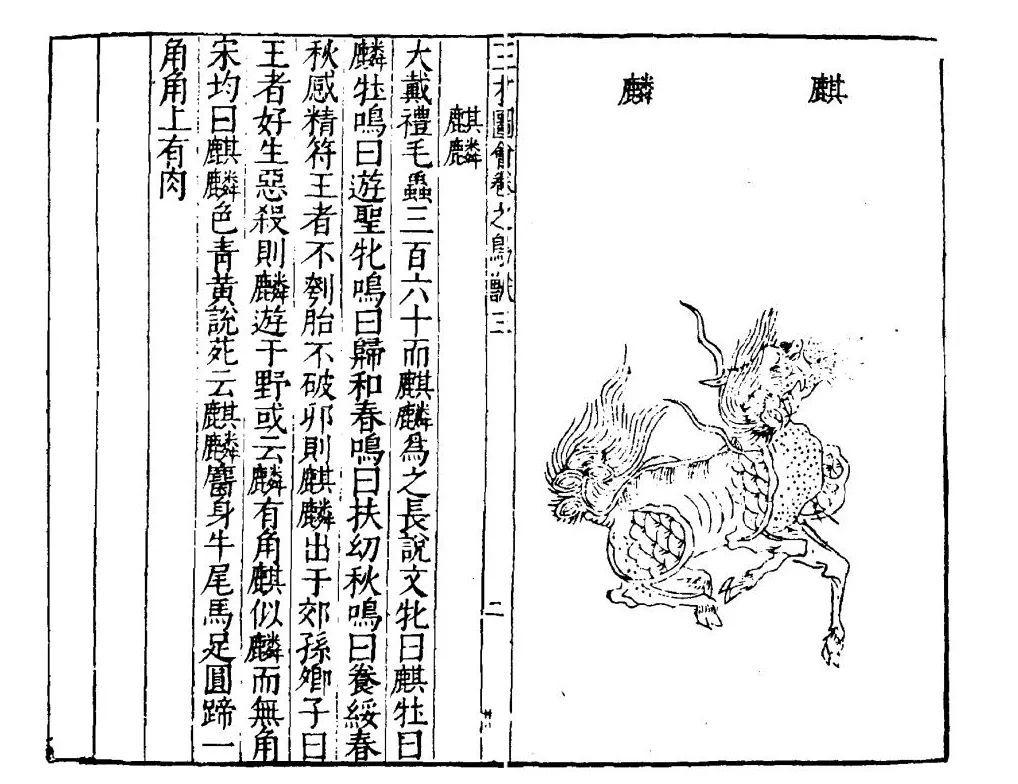 麒麟
三才圖會卷之鳥獸三
二
麒麟
大戴禮毛蟲三百六十而麒麟為之長說文牝曰麒牡曰
麟牡鳴曰遊聖牝鳴曰歸和春鳴曰扶幼秋鳴曰養綏春
秋感精符王者不刳胎不破卵則麒麟出于郊孫卿子曰
王者好生惡殺則麟遊于野或云麟有角麒似麟而無角
宋均曰麒麟色青黃說苑云麒麟麕身牛尾馬足圓蹄一
角角上有肉